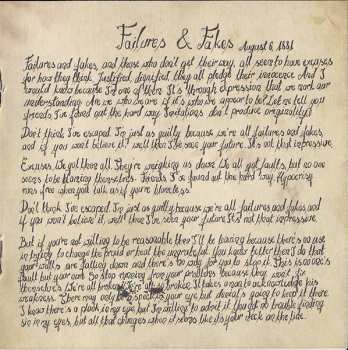 Failures & Fakes August 6, 1881
Failures and fakes, and those who don't get their way, all seem to have excuses
for how they think. Justified, dignified they all pledge their innocence And I
would know because I'm one of them. It's through expression that we mark our
understanding. Are we who we are if it's who we appear to be? Let me tell you
friends I've found out the hard way. Imitations don't produce originality!
Don't think I've escaped. I'm just as guilty because we're all failures and fakes,
and if you won't believe it, well then I've seen your future. It's not that impressive.
Excuses. We got them all. They're weighing us down. We all got faults, but no one
seems to be blaming themselves. Friends, I've found out the hard way. Hypocrisy
runs free when you talk as if you're blameless!
Don't think I've escaped. I'm just as guilty because we're all failures and fakes and
if you won't believe it, well then I've seen your future. It's not that impressive.
But if you're not willing to be reasonable then I'll be leaving because there's no use
in trying to change the proud or haut the ungrateful. You know better than I do that
your walls are falling down and there's no one for you to blame. This is no one's
fault but your own. So stop running from your problems because they won't fix
themselves. We're all broken. We're all broken. It takes a man to acknowledge his
weakness. There may only be a speck in your eye but denial's going to keep it there.
I know there's a plank in my eye but I'm willing to admit it though no trouble finding
sin in my eyes, but all that changes when it seems like its your neck on the line.